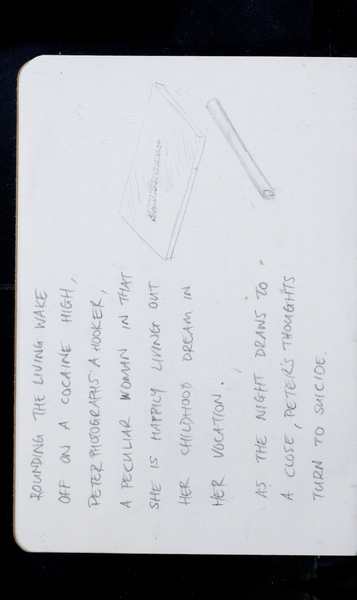 ROUNDING THE LIVING WAKE
OFF ON A COCAINE HIGH,
PETER PHOTOGRAPHS A HOOKER,
A PECULIAR WOMAN IN THAT
SHE IS HAPPILY LIVING OUT
HER CHILDHOOD DREAM IN
HER VOCATION.
AS THE NIGHT DRAWS TO
A CLOSE, PETER'S THOUGHTS
TURN TO SUICIDE.